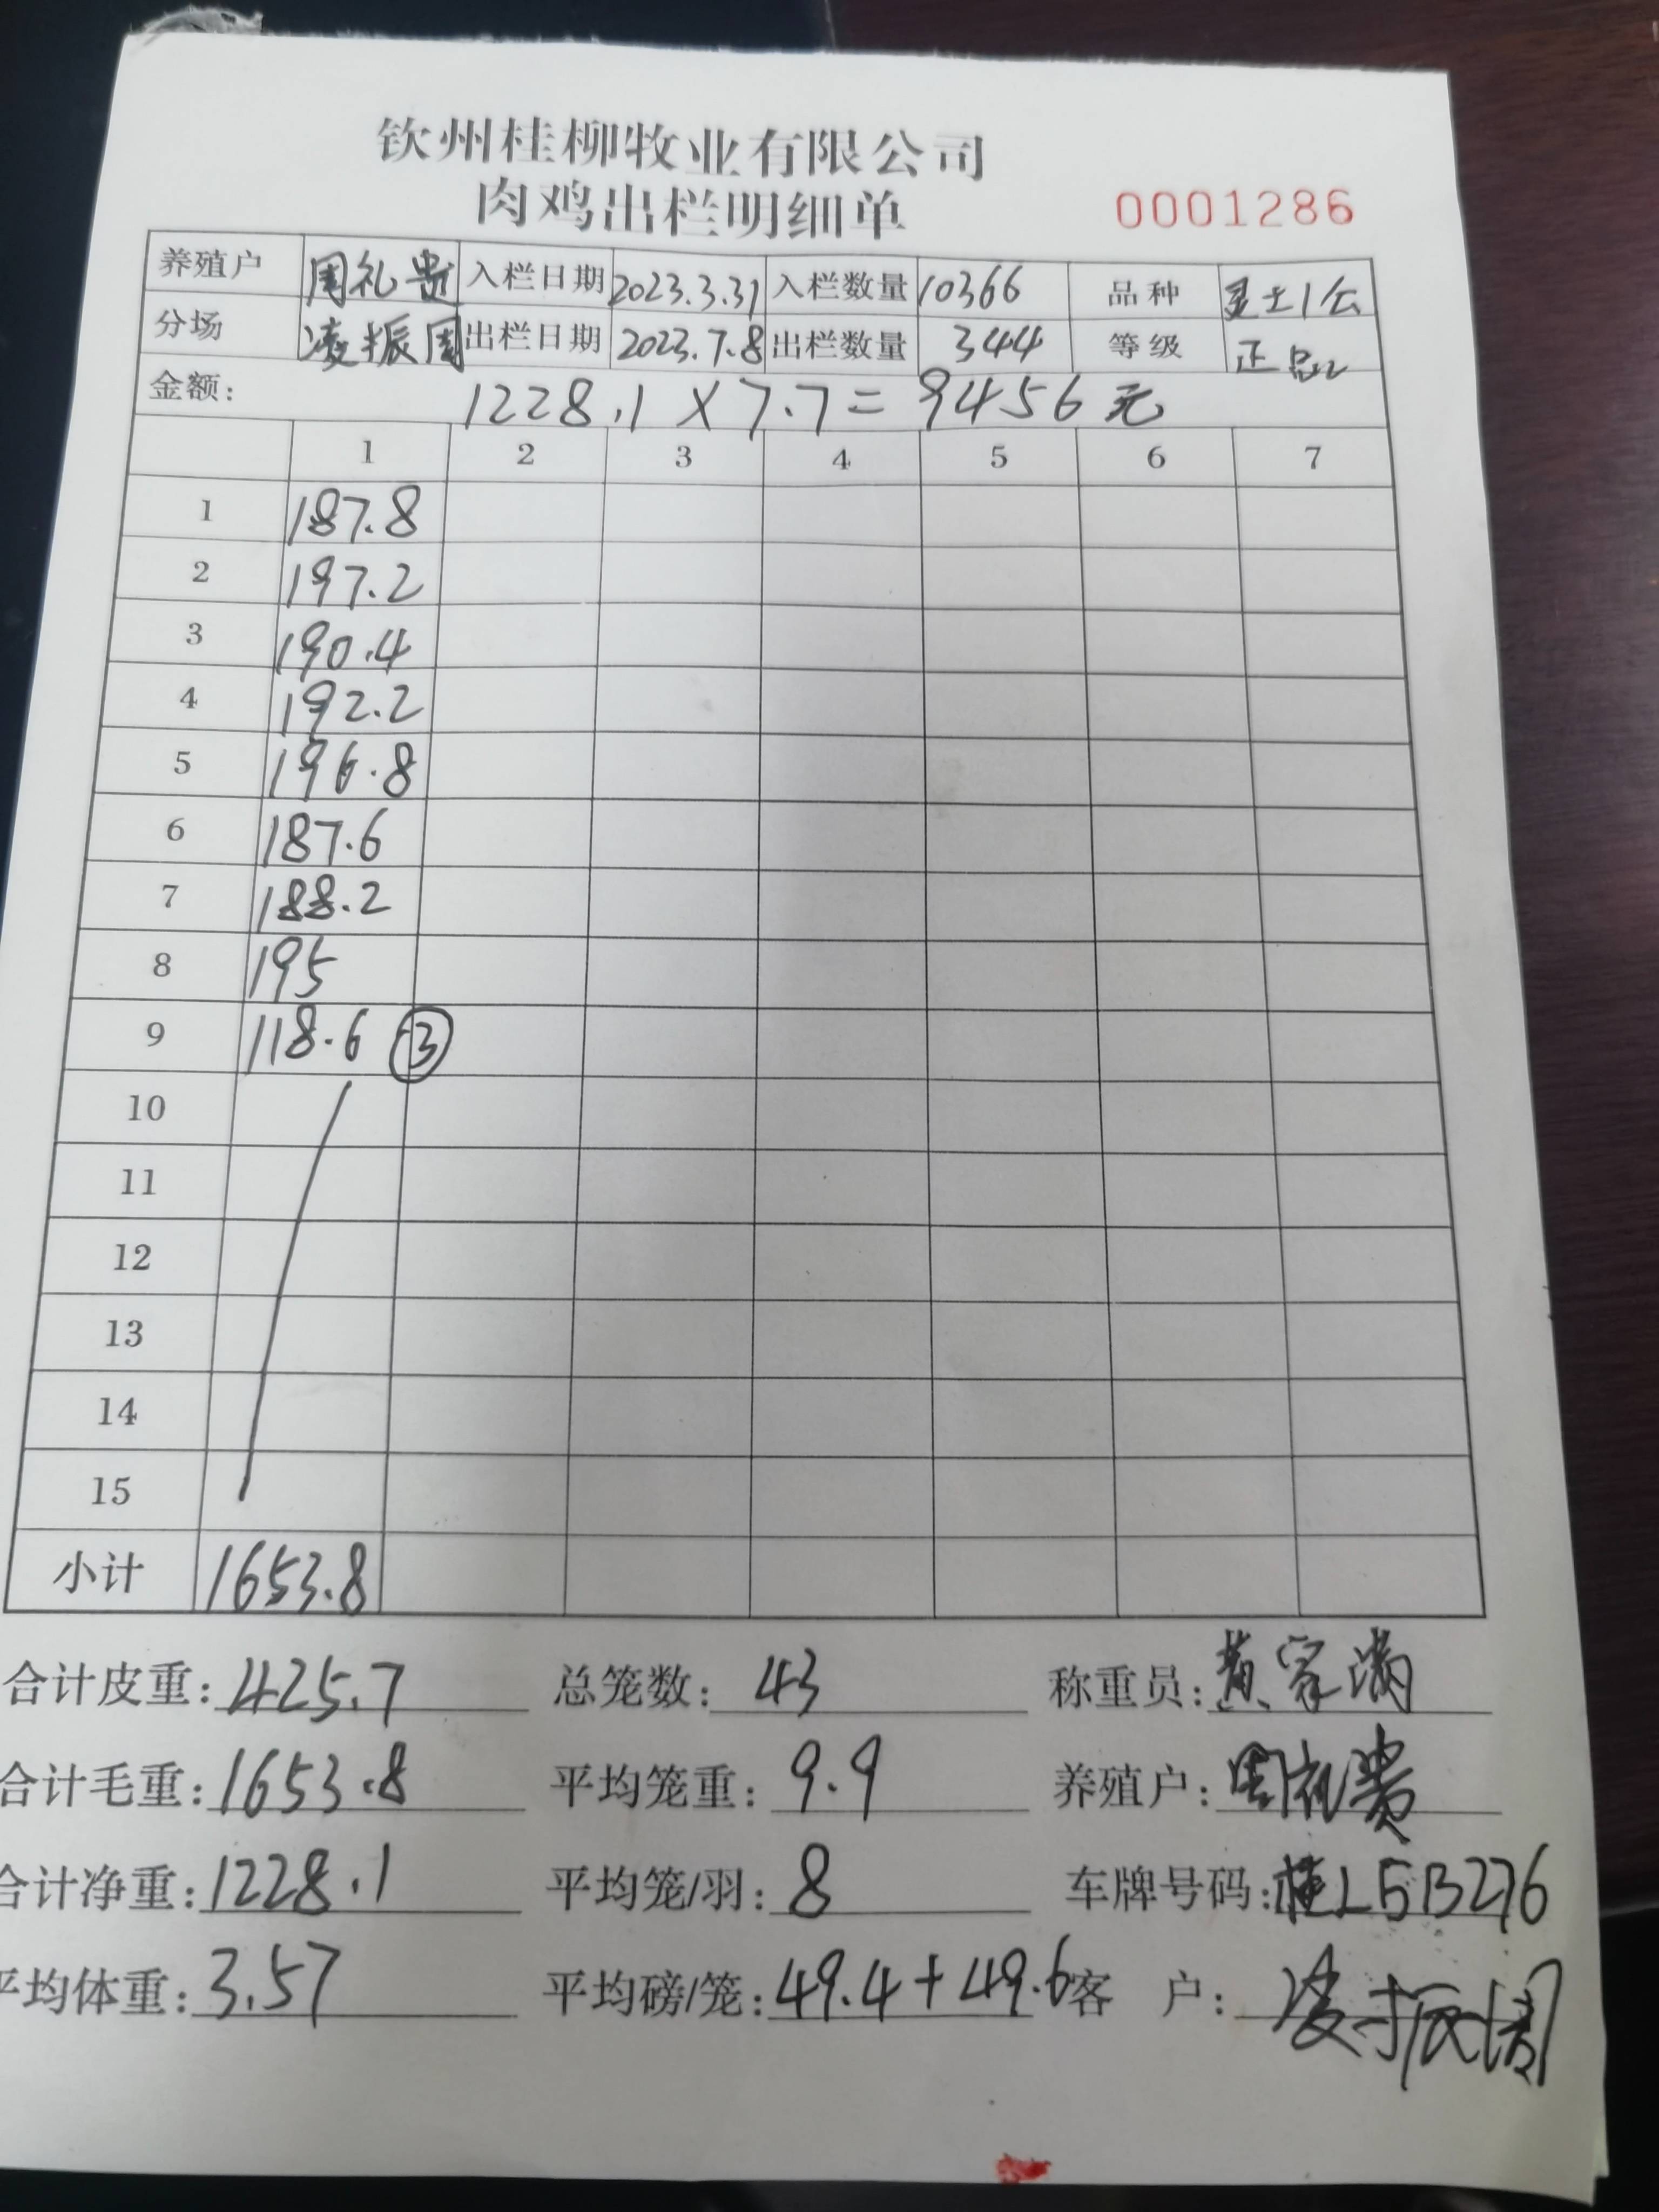 钦州桂柳牧业有限公司
肉鸡出栏明细单 0001286
养殖户 周礼贵 入栏日期 2023.3.31 入栏数量 10366 品种 灵土1公
分场 凌振周 出栏日期 2023.7.8 出栏数量 344 等级 正品
金额: 1228.1 X 7.7 = 9456 元
1 2 3 4 5 6 7
1 187.8
2 197.2
3 190.4
4 192.2
5 196.8
6 187.6
7 188.2
8 195
9 118.6 ③
10
11
12
13
14
15
小计 1653.8
合计皮重: 425.7 总笼数: 43 称重员: 黄家满
合计毛重: 1653.8 平均笼重: 9.9 养殖户: 周礼贵
合计净重: 1228.1 平均笼/羽: 8 车牌号码: 桂L5B276
平均体重: 3.57 平均磅/笼: 49.4+49.6 客 户: 凌振周